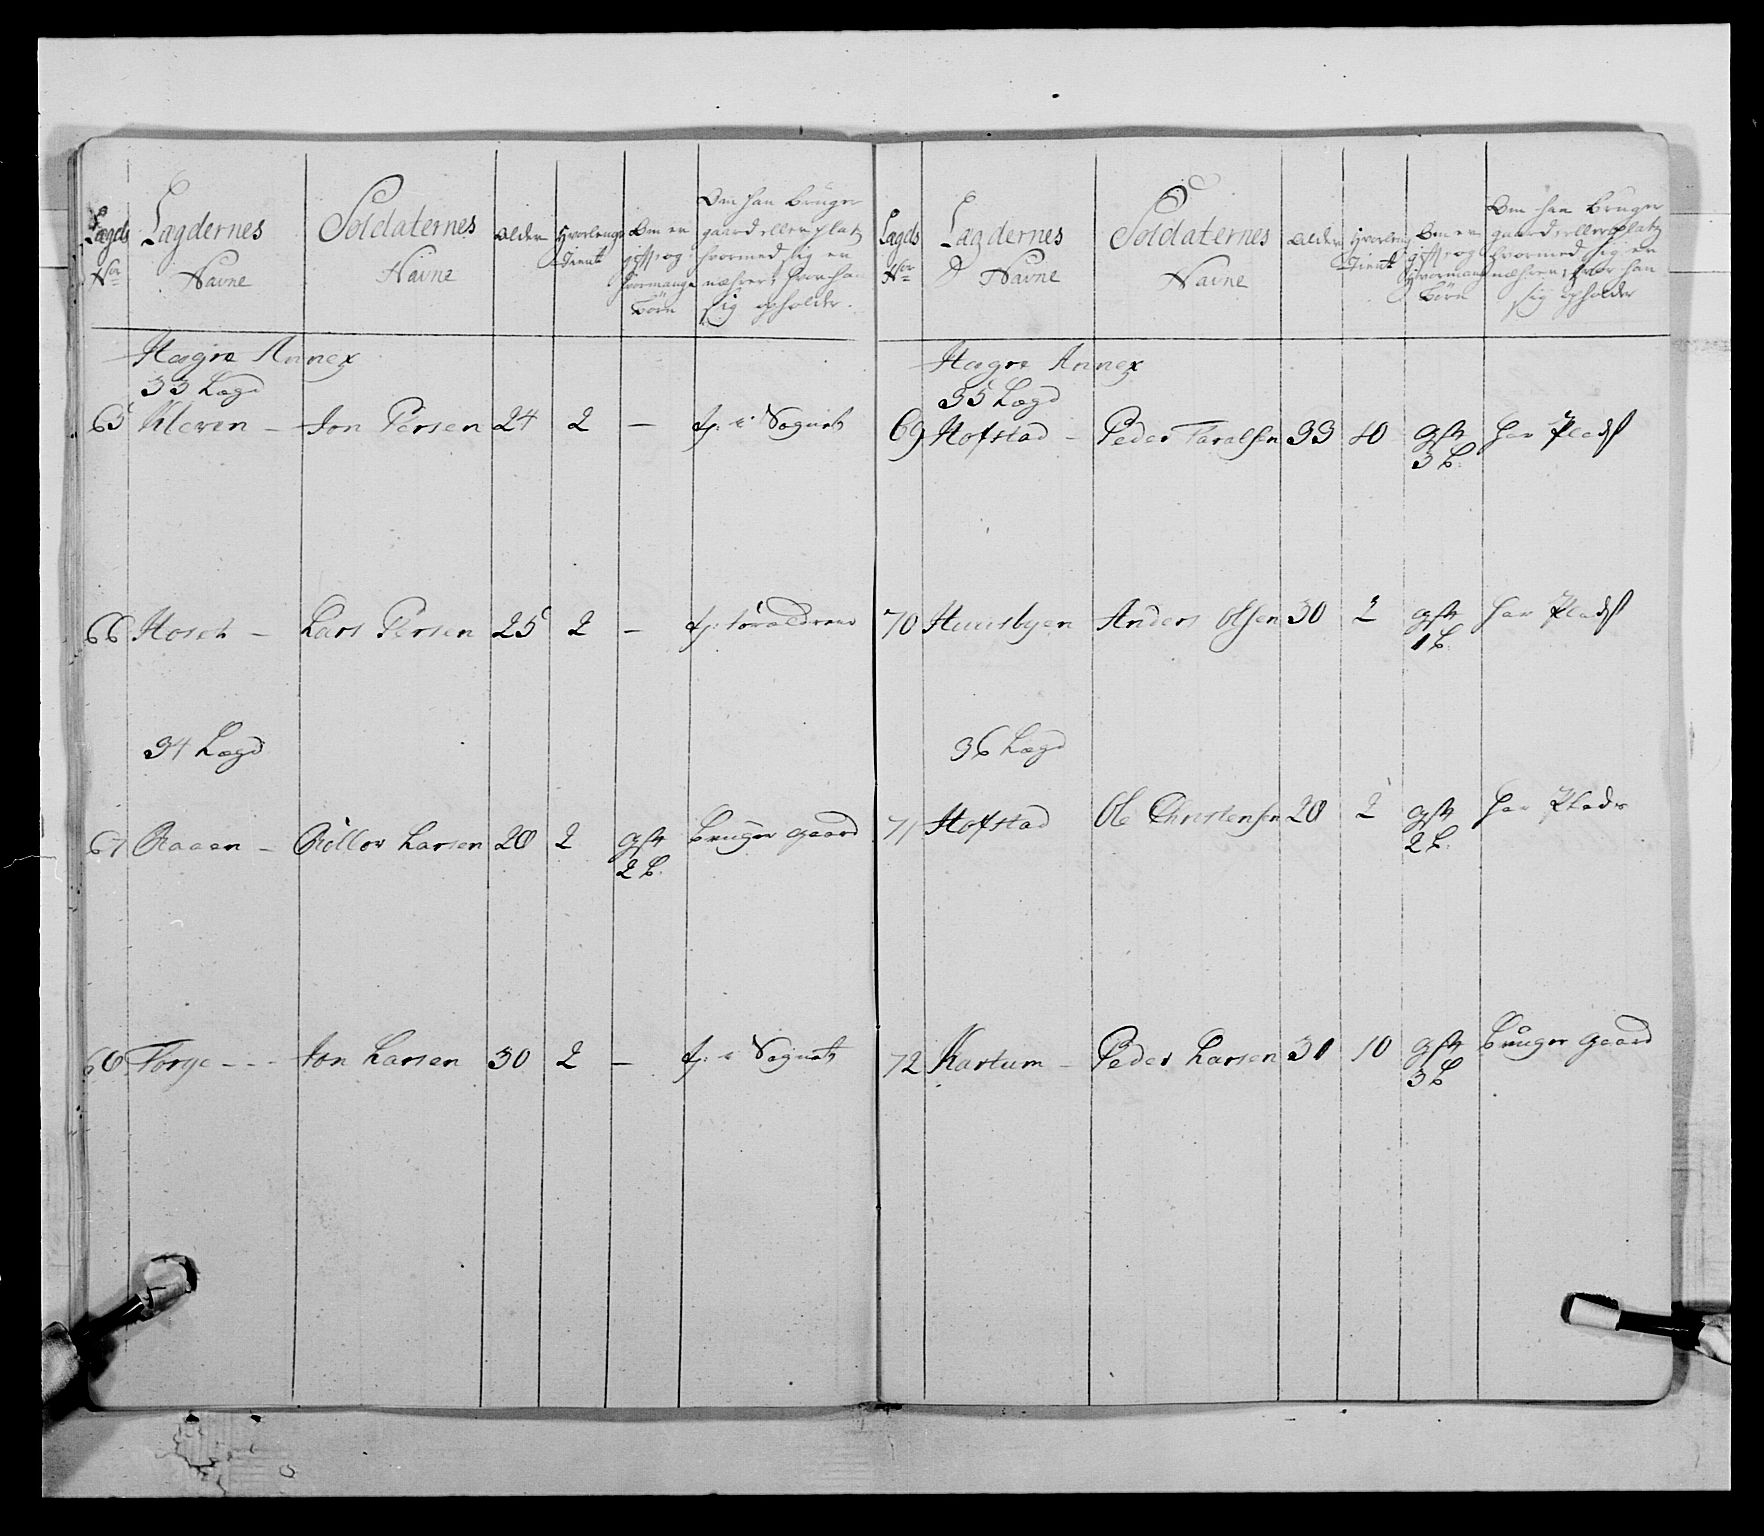 Lægds Nor
Lægdernes Navne
Soldaternes Navne
Alder
Hvorlenge Tient
Om en gift og hvormange Børn
Om han bruger gaard eller platz hvormed sig en næhrer, hvor han sig opholder.
Hægre Annex
33 Lægd
65 Kleven - Jon Persen 24 2 - op: i Sognet
66 Hosch - Lars Persen 25 2 - forældrene
34 Lægd
67 Raaen - Rollov Larsen 28 2 gift 2 b. bruger gaard
68 Forge - - Jon Larsen 30 2 - op: i Sognet
Lægds Nor
Lægdernes Navne
Soldaternes Navne
Alder
Hvorleng Tient
Om en gift og hvormange Børn
Om han bruger gaard eller platz hvormed sig en næhrer, hvor han sig opholder
Hægre Annex
35 Lægd
69 Hofstad - Peder Taralsen 33 10 gift 3 b. har Plads
70 Huusbyen Anders Olsen 30 2 gift 1 b. har Plads
36 Lægd
71 Hofstad Ole Christensen 28 2 gift 2 b. har Plads
72 Kartum - Peder Larsen 31 10 gift 3 b bruger gaard